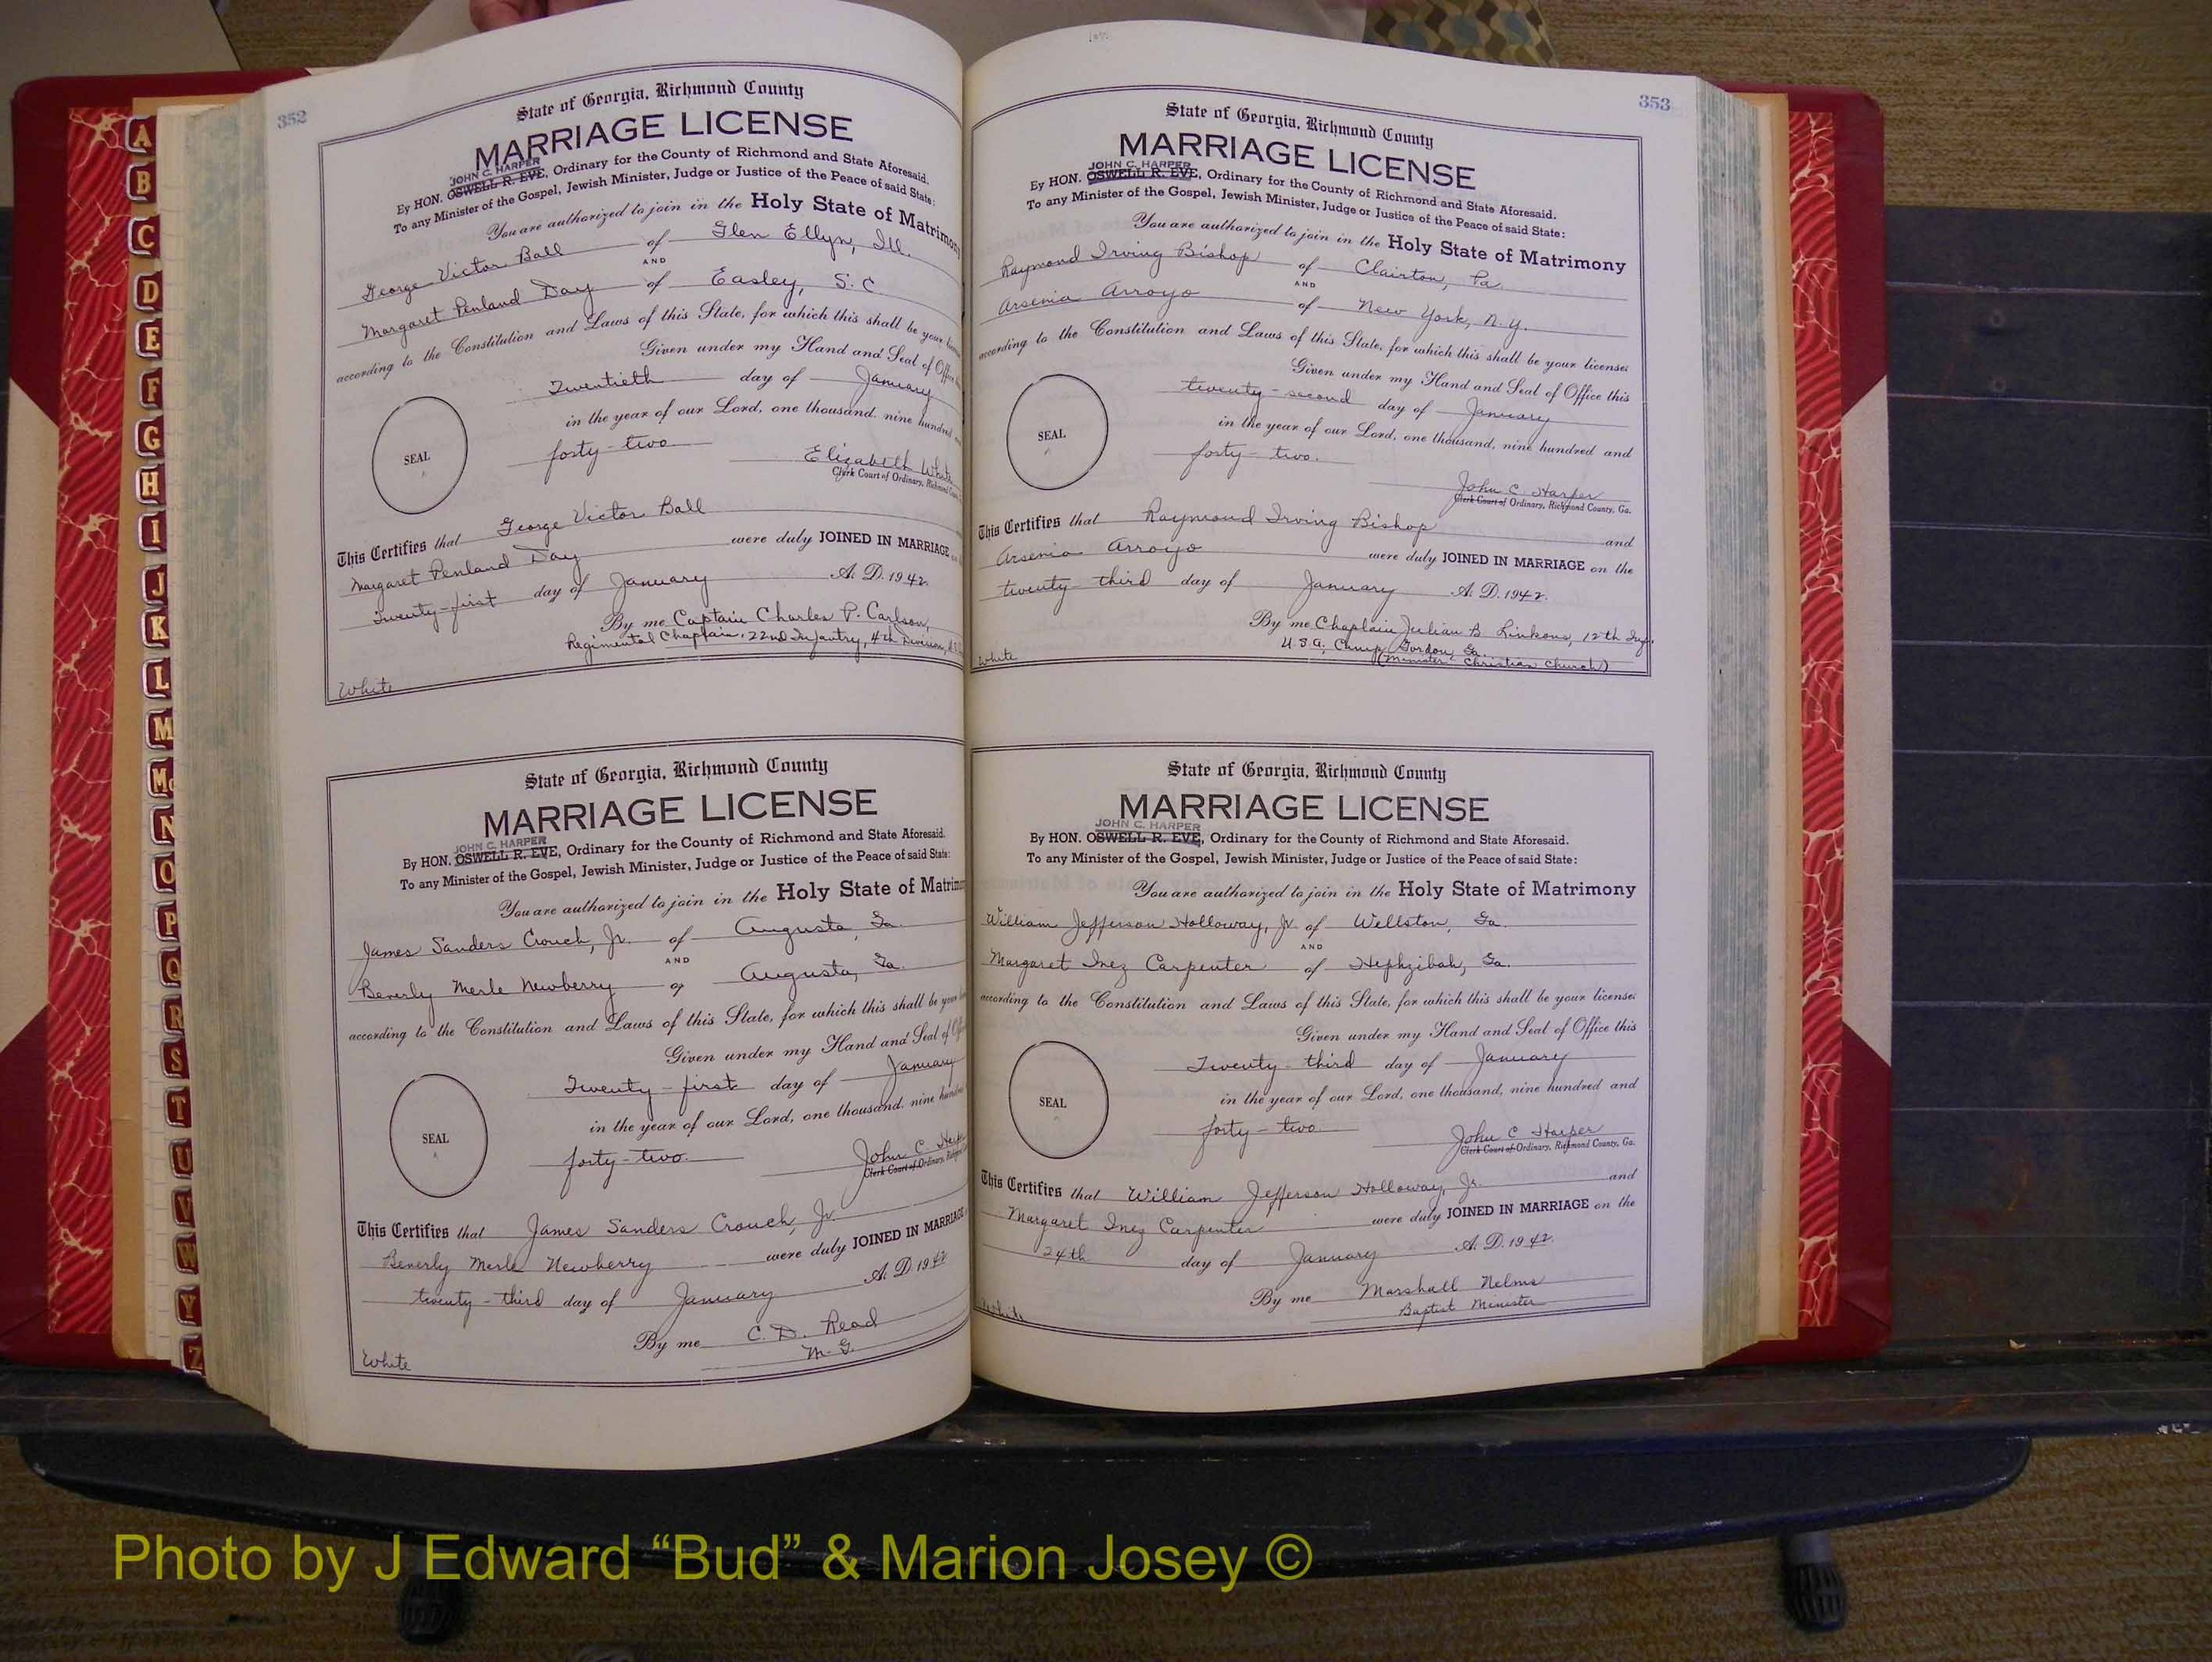 352
State of Georgia, Richmond County
MARRIAGE LICENSE
JOHN C. HARPER
By HON. OSWELL R. EVE, Ordinary for the County of Richmond and State Aforesaid.
To any Minister of the Gospel, Jewish Minister, Judge or Justice of the Peace of said State:
You are authorized to join in the Holy State of Matrimony
George Victor Ball of Glen Ellyn, Ill.
AND
Margaret Penland Day of Easley, S.C
according to the Constitution and Laws of this State, for which this shall be your
Given under my Hand and Seal of
Twentieth day of January
in the year of our Lord, one thousand, nine hundred
forty-two
SEAL
Elizabeth
Clerk Court of Ordinary,
This Certifies that George Victor Ball
Margaret Penland Day were duly JOINED IN MARRIAGE
Twenty-first day of January A. D. 1942.
By me Captain Charles P. Carlson,
Regimental Chaplain, 22nd Infantry, 4th Division,
White
State of Georgia, Richmond County
MARRIAGE LICENSE
JOHN C. HARPER
By HON. OSWELL R. EVE, Ordinary for the County of Richmond and State Aforesaid.
To any Minister of the Gospel, Jewish Minister, Judge or Justice of the Peace of said State:
You are authorized to join in the Holy State of
James Sanders Crouch, Jr. of Augusta, Ga.
AND
Beverly Merle Newberry of Augusta, Ga.
according to the Constitution and Laws of this State, for which this shall be your
Given under my Hand and Seal of
Twenty-first day of January
in the year of our Lord, one thousand, nine
forty-two.
SEAL
John C.
Clerk Court of Ordinary,
This Certifies that James Sanders Crouch, Jr.
Beverly Merle Newberry were duly JOINED IN MARRIAGE
twenty-third day of January A. D. 1942
By me C. D. Read
M. G.
White
353
State of Georgia, Richmond County
MARRIAGE LICENSE
JOHN C. HARPER
By HON. OSWELL R. EVE, Ordinary for the County of Richmond and State Aforesaid.
To any Minister of the Gospel, Jewish Minister, Judge or Justice of the Peace of said State:
You are authorized to join in the Holy State of Matrimony
Raymond Irving Bishop of Clairton, Pa.
AND
Arsenia Arroyo of New York, N.Y.
according to the Constitution and Laws of this State, for which this shall be your license:
Given under my Hand and Seal of Office this
twenty-second day of January
in the year of our Lord, one thousand, nine hundred and
forty-two.
SEAL
John C. Harper
Clerk Court of Ordinary, Richmond County, Ga.
This Certifies that Raymond Irving Bishop and
Arsenia Arroyo were duly JOINED IN MARRIAGE on the
twenty third day of January A. D. 1942.
By me Chaplain Julian B Linkous, 12th Inf.
U.S.A. Camp Gordon, Ga.
(Minister Christian Church)
White
State of Georgia, Richmond County
MARRIAGE LICENSE
JOHN C. HARPER
By HON. OSWELL R. EVE, Ordinary for the County of Richmond and State Aforesaid.
To any Minister of the Gospel, Jewish Minister, Judge or Justice of the Peace of said State:
You are authorized to join in the Holy State of Matrimony
William Jefferson Holloway, Jr. of Wellston, Ga.
AND
Margaret Inez Carpenter of Hephzibah, Ga.
according to the Constitution and Laws of this State, for which this shall be your license:
Given under my Hand and Seal of Office this
Twenty-third day of January
in the year of our Lord, one thousand, nine hundred and
forty-two.
SEAL
John C Harper
Clerk Court of Ordinary, Richmond County, Ga.
This Certifies that William Jefferson Holloway, Jr. and
Margaret Inez Carpenter were duly JOINED IN MARRIAGE on the
24th day of January A. D. 1942.
By me Marshall Nelms
Baptist Minister
White
A
B
C
D
E
F
G
H
I
J
K
L
M
Mc
N
O
P
Q
R
S
T
U
V
W
Y
Z
Photo by J Edward “Bud” & Marion Josey ©